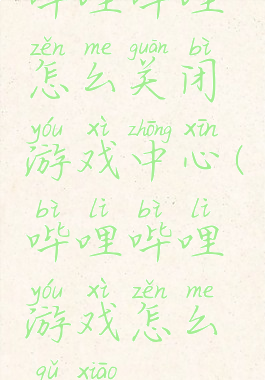 哔哩哔哩
zěn me guān bì
怎么关闭
yóu xì zhōng xīn
游戏中心(
bì lì bì lì
哔哩哔哩
yóu xì zěn me
游戏怎么
qǔ xiāo